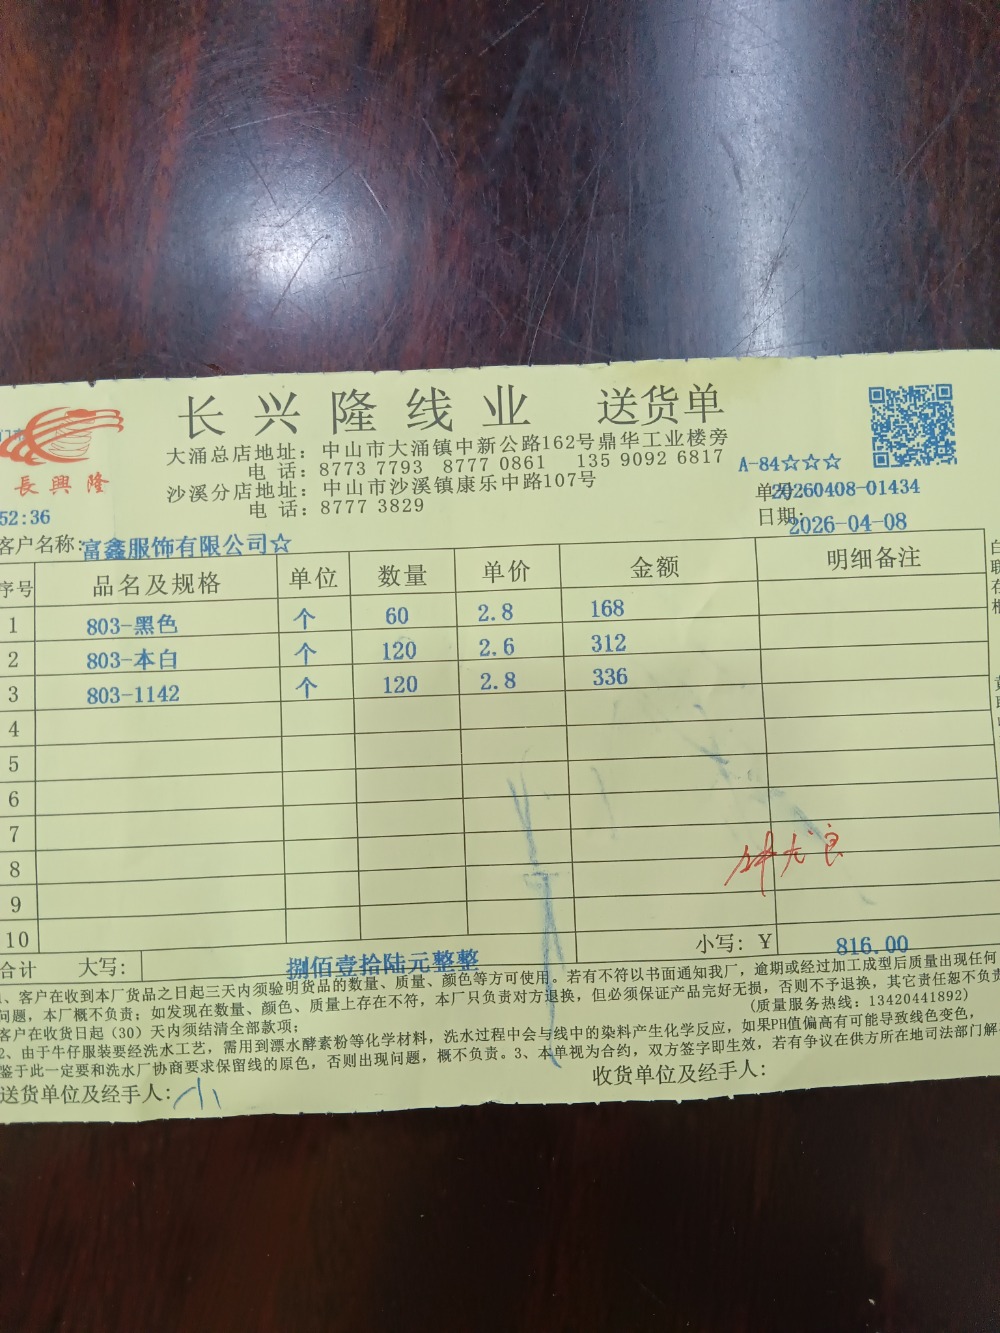 长兴隆线业 送货单
大涌总店地址：中山市大涌镇中新公路162号鼎华工业楼旁
电 话：8773 7793 8777 0861 135 9092 6817
沙溪分店地址：中山市沙溪镇康乐中路107号
电 话：8777 3829
長興隆
A-84☆☆☆
单号:20260408-01434
日期:2026-04-08
52:36
客户名称:富鑫服饰有限公司☆
序号 品名及规格 单位 数量 单价 金额 明细备注
1 803-黑色 个 60 2.8 168
2 803-本白 个 120 2.6 312
3 803-1142 个 120 2.8 336
4
5
6
7
8
9
10
合计 大写: 捌佰壹拾陆元整整 小写: ￥ 816.00
1、客户在收到本厂货品之日起三天内须验明货品的数量、质量、颜色等方可使用。若有不符以书面通知我厂，逾期或经过加工成型后质量出现任何
问题，本厂概不负责；如发现在数量、颜色、质量上存在不符，本厂只负责对方退换，但必须保证产品完好无损，否则不予退换，其它责任恕不负责
客户在收货日起（30）天内须结清全部款项； (质量服务热线：13420441892)
2、由于牛仔服装要经洗水工艺，需用到漂水酵素粉等化学材料，洗水过程中会与线中的染料产生化学反应，如果PH值偏高有可能导致线色变色，
鉴于此一定要和洗水厂协商要求保留线的原色，否则出现问题，概不负责。3、本单视为合约，双方签字即生效，若有争议在供方所在地司法部门解
送货单位及经手人: 收货单位及经手人: